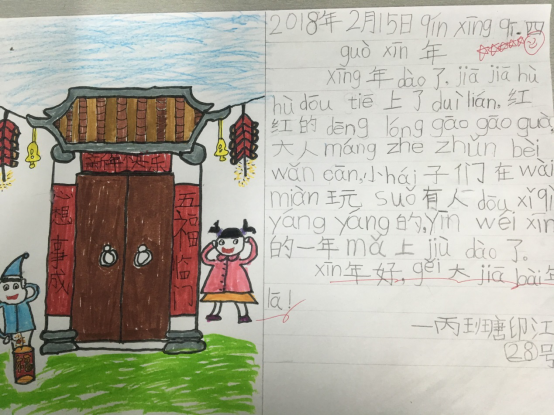 新年快乐
心想事成
五福临门
2018年2月15日 qín xīng qī.四
guò xīn 年
xīng 年 dào 了. jiā jiā hù
hù dōu tiē 上了 duì lián, 红
红的 dēng lóng gāo gāo guà
大人 máng zhe zhǔn bèi
wǎn cān, 小 hái 子们在 wài
miàn 玩 suǒ 有人 dōu xǐ qì
yáng yáng 的, yīn wéi xīn
的一年 mǎ 上 jiù dào 了.
xīn 年好, gěi 大 jiā bài 年
la!
一丙班瑭印江
28号